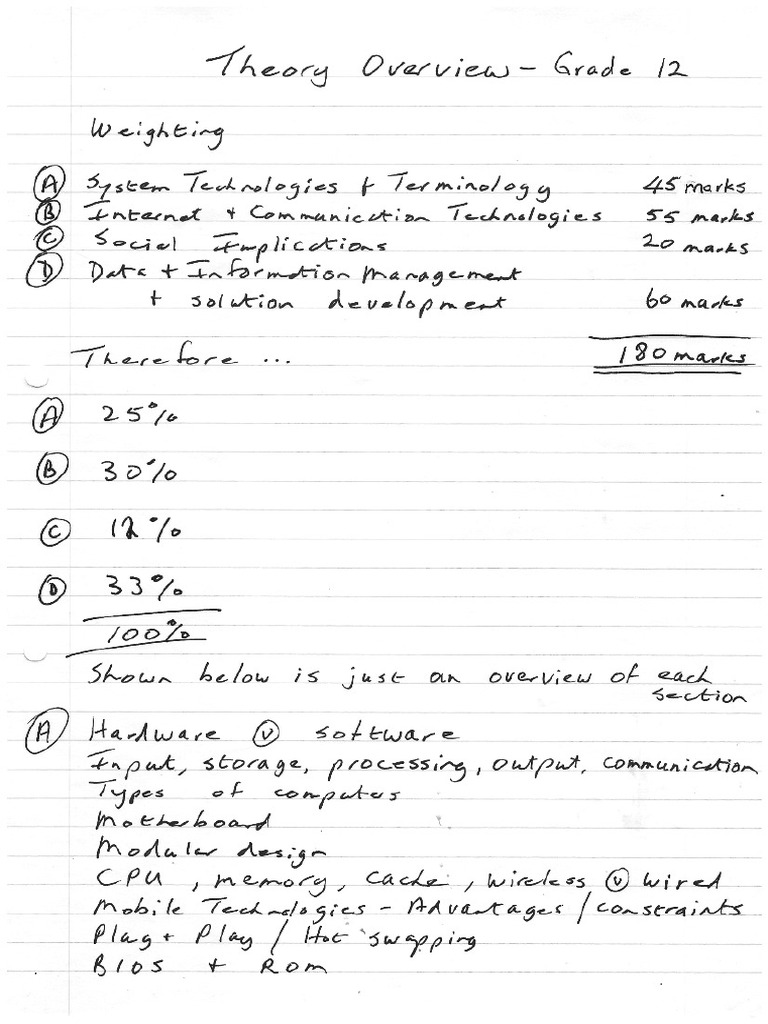 Theory Overview - Grade 12
Weighting
Ⓐ System Technologies + Terminology 45 marks
Ⓑ Internet + Communication Technologies 55 marks
Ⓒ Social Implications 20 marks
Ⓓ Data + Information Management
+ solution development 60 marks
Therefore ... 180 marks
Ⓐ 25%
Ⓑ 30%
Ⓒ 12%
Ⓓ 33%
100%
Shown below is just an overview of each
section
Ⓐ Hardware ⓥ software
Input, storage, processing, output, communication
Types of computers
Motherboard
Modular design
CPU, memory, cache, wireless ⓥ wired
Mobile Technologies - Advantages / constraints
Plug + Play / Hot swapping
BIOS + ROM